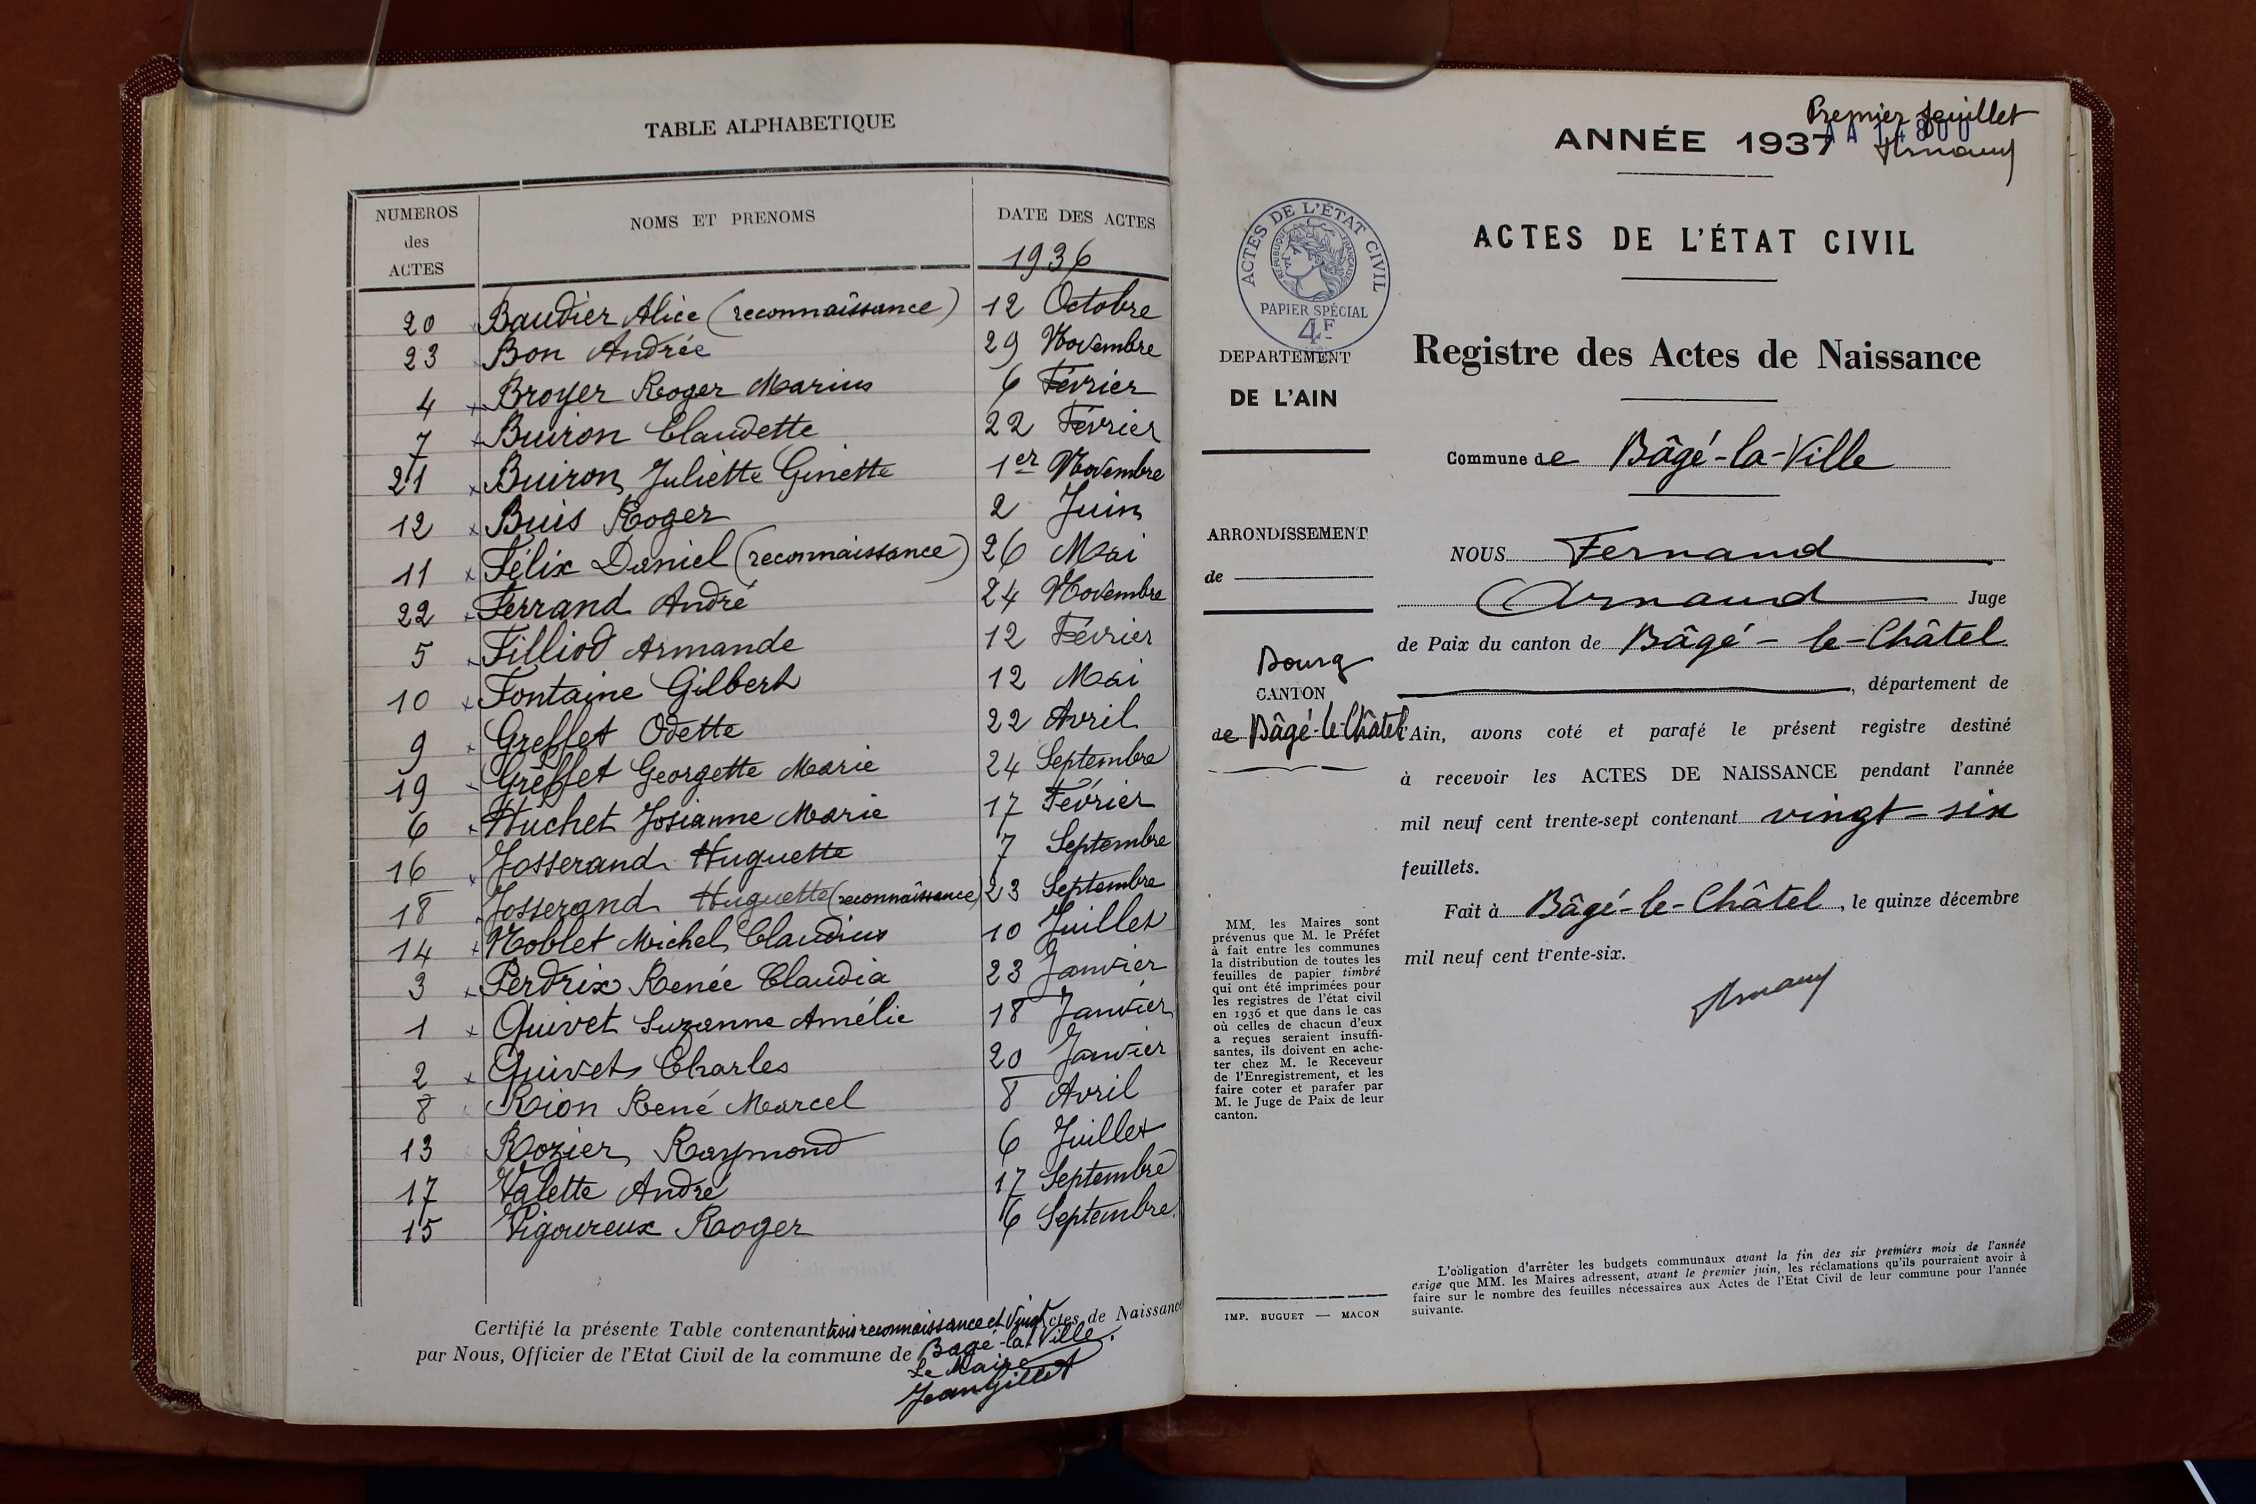 TABLE ALPHABETIQUE
NUMEROS des ACTES
NOMS ET PRENOMS
DATE DES ACTES
1936
20 Baudier Alice (reconnaissance) 12 Octobre
23 Bon Andrée 29 Novembre
4 Broyer Roger Marius 6 Février
7 Buiron Claudette 22 Février
21 Buiron Juliette Ginette 1er Novembre
12 Buis Roger 2 Juin
11 Félix Daniel (reconnaissance) 26 Mai
22 Ferrand André 24 Novembre
5 Filliod Armande 12 Février
10 Fontaine Gilbert 12 Mai
9 Greffet Odette 22 Avril
19 Greffet Georgette Marie 24 Septembre
6 Huchet Josianne Marie 17 Février
16 Josserand Huguette 7 Septembre
18 Josserand Huguette (reconnaissance) 23 Septembre
14 Noblet Michel Claudius 10 Juillet
3 Perdrix Renée Claudia 23 Janvier
1 Quivet Suzanne Amélie 18 Janvier
2 Quivet Charles 20 Janvier
8 Rion René Marcel 8 Avril
13 Rozier Raymond 6 Juillet
17 Valette André 17 Septembre
15 Vigoureux Roger 6 Septembre
Certifié la présente Table contenant trois reconnaissance et vingt actes de Naissance
par Nous, Officier de l'Etat Civil de la commune de Bagé-la-Ville.
Le Maire
Jean Gillet
Premier feuillet
AA 14800
ANNÉE 1937
Arnaud
ACTES DE L'ÉTAT CIVIL
ACTES DE L'ÉTAT CIVIL
RÉPUBLIQUE FRANÇAISE
PAPIER SPÉCIAL
4F
Registre des Actes de Naissance
DEPARTEMENT
DE L'AIN
Commune de Bâgé-la-Ville
ARRONDISSEMENT
de
Bourg
CANTON
de Bâgé-le-Châtel
NOUS Fernand
Arnaud Juge
de Paix du canton de Bâgé-le-Châtel
, département de
l'Ain, avons coté et parafé le présent registre destiné
à recevoir les ACTES DE NAISSANCE pendant l'année
mil neuf cent trente-sept contenant vingt-six
feuillets.
Fait à Bâgé-le-Châtel, le quinze décembre
mil neuf cent trente-six.
Arnaud
MM. les Maires sont
prévenus que M. le Préfet
à fait entre les communes
la distribution de toutes les
feuilles de papier timbré
qui ont été imprimées pour
les registres de l'état civil
en 1936 et que dans le cas
où celles de chacun d'eux
a reçues seraient insuffi-
santes, ils doivent en ache-
ter chez M. le Receveur
de l'Enregistrement, et les
faire coter et parafer par
M. le Juge de Paix de leur
canton.
IMP. BUGUET — MACON
L'obligation d'arrêter les budgets communaux avant la fin des six premiers mois de l'année
exige que MM. les Maires adressent, avant le premier juin, les réclamations qu'ils pourraient avoir à
faire sur le nombre des feuilles nécessaires aux Actes de l'Etat Civil de leur commune pour l'année
suivante.